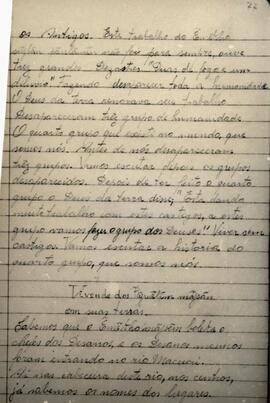 os Antigos. Este trabalho do
não foi para sempre, ouve
três grandes Dezastres "Duas de fogo e um
diluvio". Fazendo desaparecer toda a humanidade.
O Deus da terra renovava seu trabalho
Desapareceram três grupo de humanidade.
O quarto grupo que existe no mundo, que
somos nós. Antes de nós desapareceram
três grupos. Vamos escutar depois os grupos
desaparecidos. Depois de ter feito o quarto
grupo o Deus da terra disse; "Está dando
muito trabalho com estes castigos, a este
grupo vamos o grupo dos Deuses"! Viver sem
castigos. Vamos escutar a historia do
quarto grupo, que somos nós.
Vivenda dos
com suas terras.
Sabemos que o
chefes dos Desanos, e os Desanos mesmos
foram entrando no rio Macucú.
Ali nas cabeceira deste rio, nos centros,
já sabemos os nomes dos lugares.